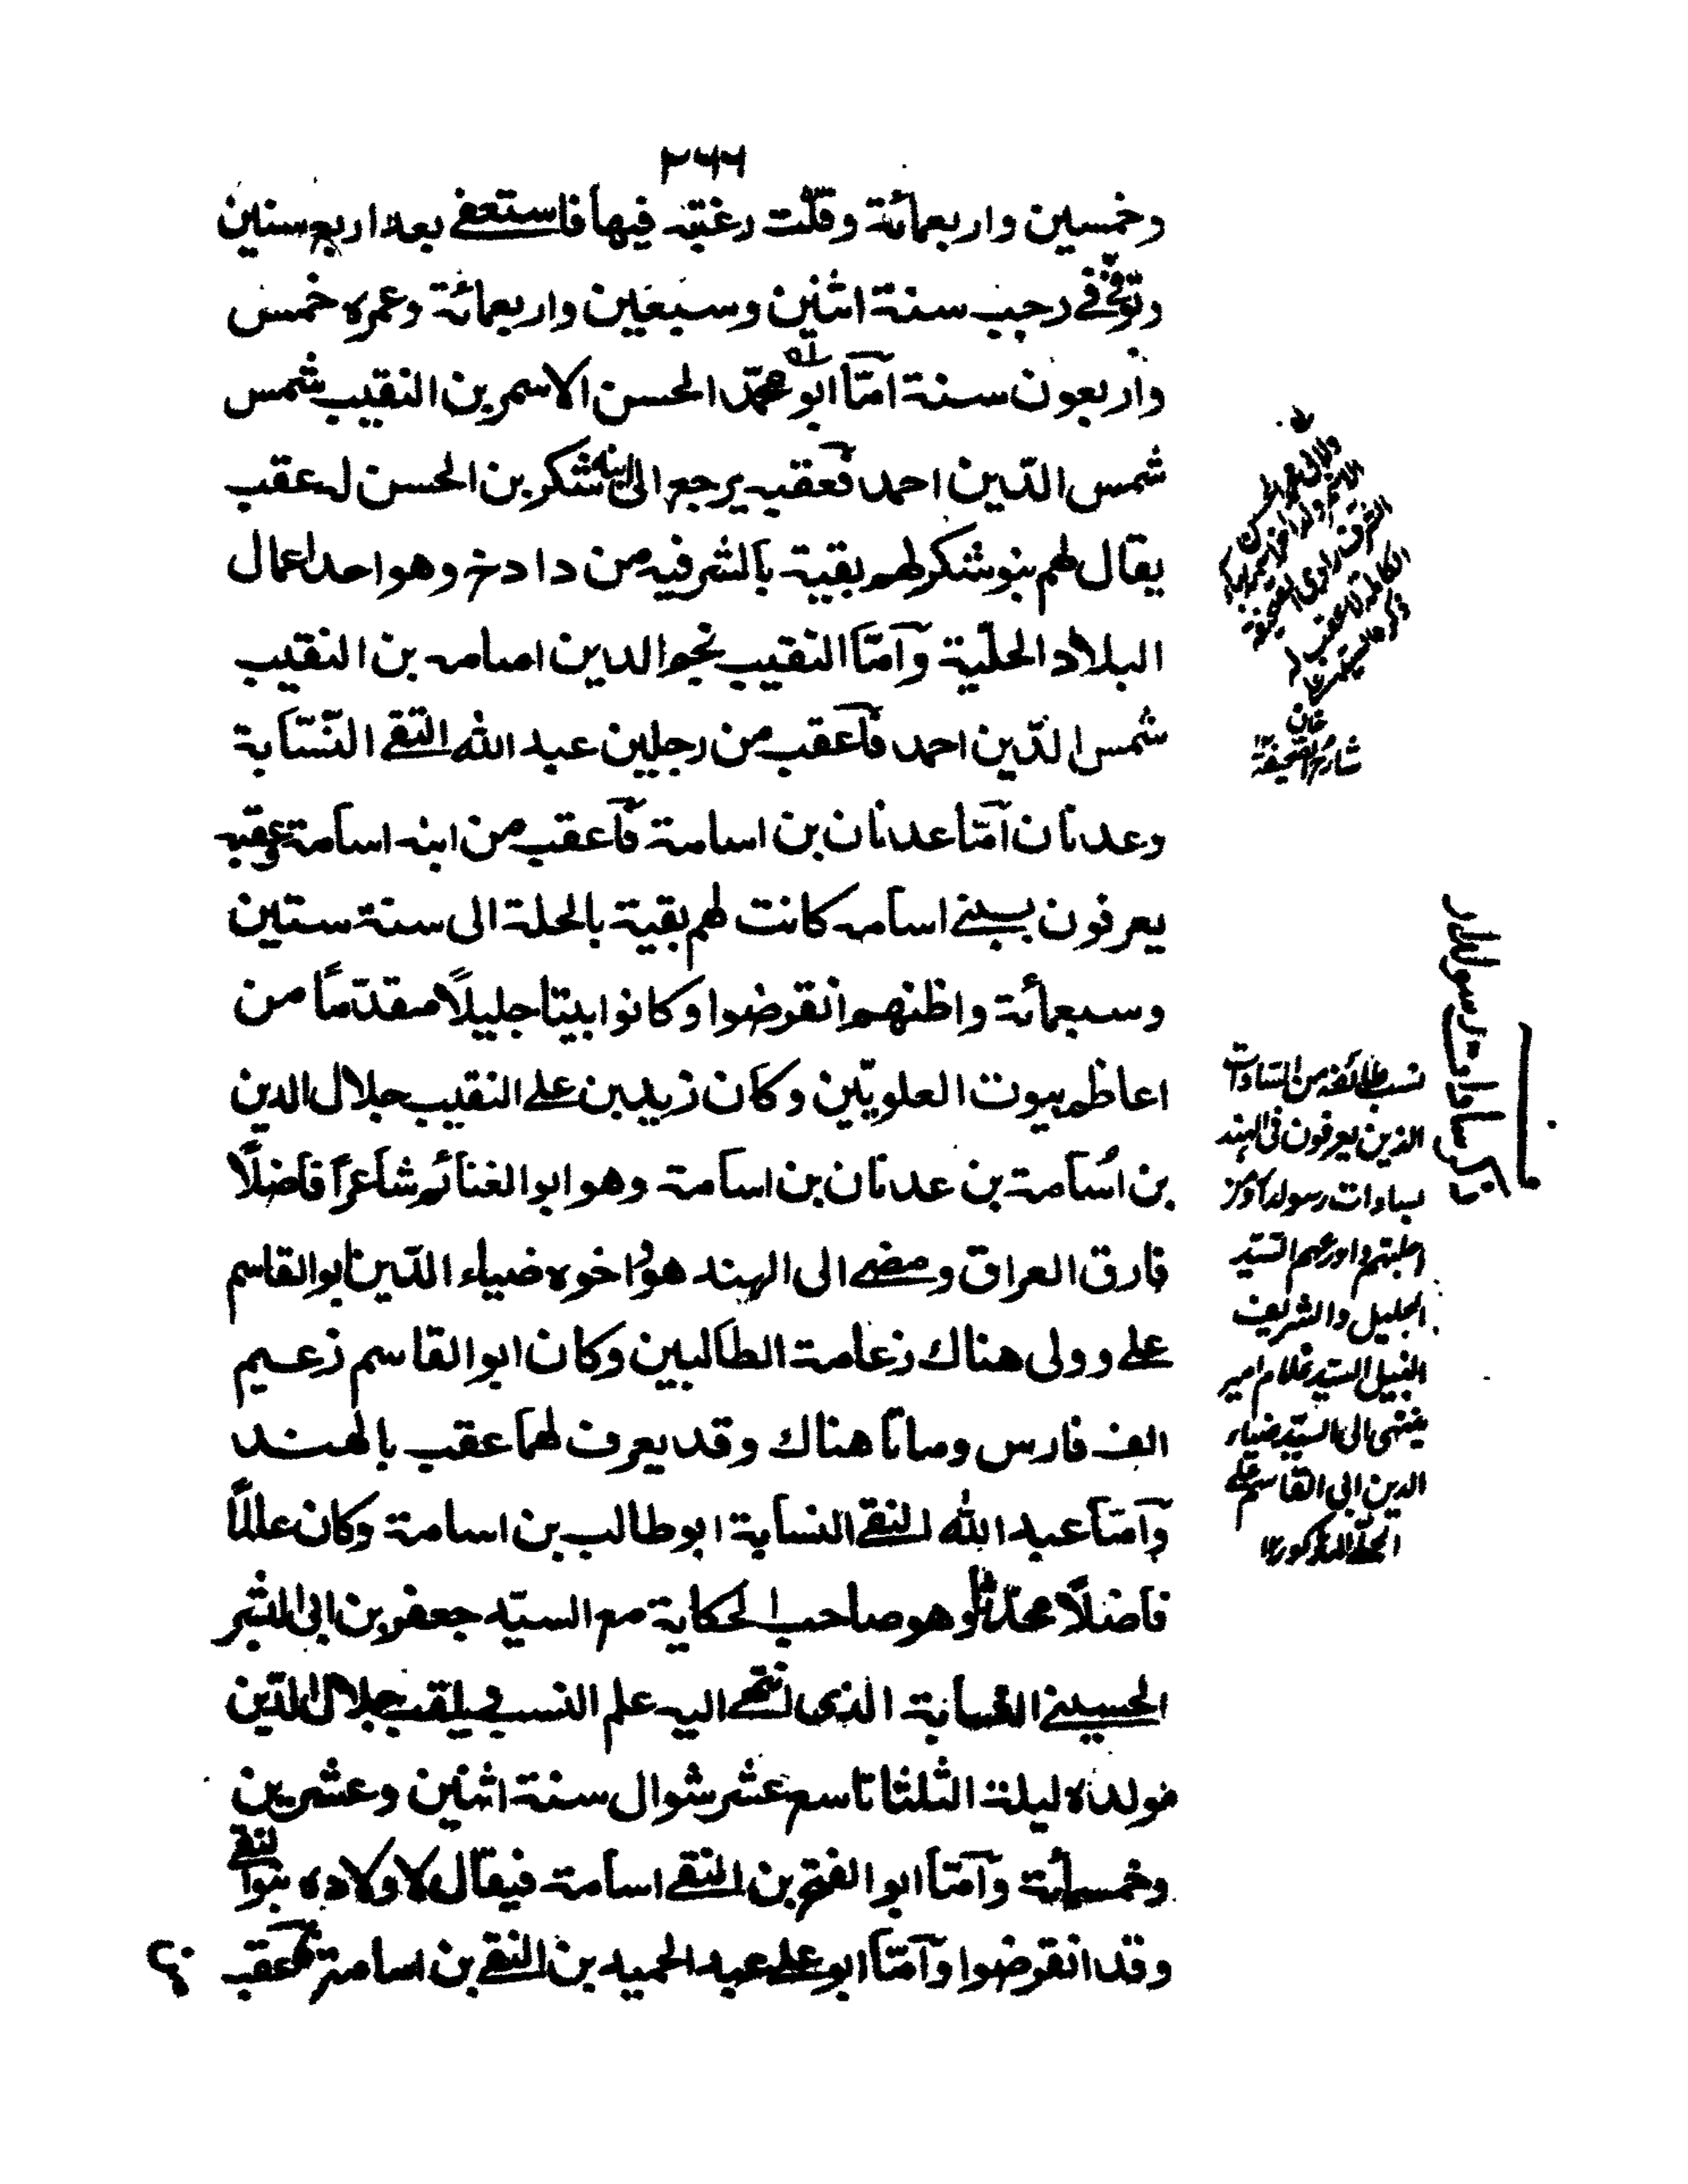 ٢٦٦
وخمسين واربعمائة وقلّت رغبته فيها فاستعفى بعد اربع سنين
وتوفّى فى رجب سنة اثنين وسبعين واربعمائة وعمره خمس
واربعون سنة امّا ابو محمّد الحسن الاسمر بن النقيب شمس
شمس الدّين احمد فعقبه يرجع الى ابنه شكر بن الحسن له عقب
يقال لهم بنو شكر لهم بقية بالشرفيه من دادخ وهو احد اعمال
البلاد الحلّية وامّا النقيب نجم الدين اسامه بن النقيب
شمس الدّين احمد فاعقب من رجلين عبد الله التقى النّسّابة
وعدنان امّا عدنان بن اسامة فاعقب من ابنه اسامة وعقبه
يعرفون ببنى اسامه كانت لهم بقية بالحلة الى سنة ستين
وسبعمائة واظنهم انقرضوا وكانوا بيتا جليلًا مقدّمًا من
اعاظم بيوت العلويّين وكان زيد بن على النقيب جلال الدين
بن اُسامة بن عدنان بن اسامة وهو ابو الغنائم شاعرًا فاضلًا
فارق العراق ومضى الى الهند هو واخوه ضياء الدّين ابو القاسم
على وولى هناك زعامة الطالبين وكان ابو القاسم زعيم
الف فارس وماتا هناك وقد يعرف لهما عقب بالهند
وامّا عبد الله التقى النسابة ابو طالب بن اسامة وكان عالمًا
فاضلًا محدّثا وهو صاحب الحكاية مع السيّد جعفر بن ابى البشر
الحسينى النسابة الذى انتهى اليه علم النسب يلقب جلال الدّين
مولده ليلة الثلثا تاسع عشر شوال سنة اثنين وعشرين
وخمسمائة وامّا ابو الفتح بن التقى اسامة فيقال لاولاده بنوا التقى
وقد انقرضوا وامّا ابو على عبد الحميد بن التقى بن اسامة فاعقب
خان
شارح الصحيفة
ذكر سادات رسولدار
نسب طائفة من السادات
الذين يعرفون فى الهند
بسادات رسولدار ومن
اجلتهم واورعهم السّيّد
الجليل والشريف
النبيل السيّد غلام امير
ينتهى الى السّيّد ضياء
الدين ابى القاسم على